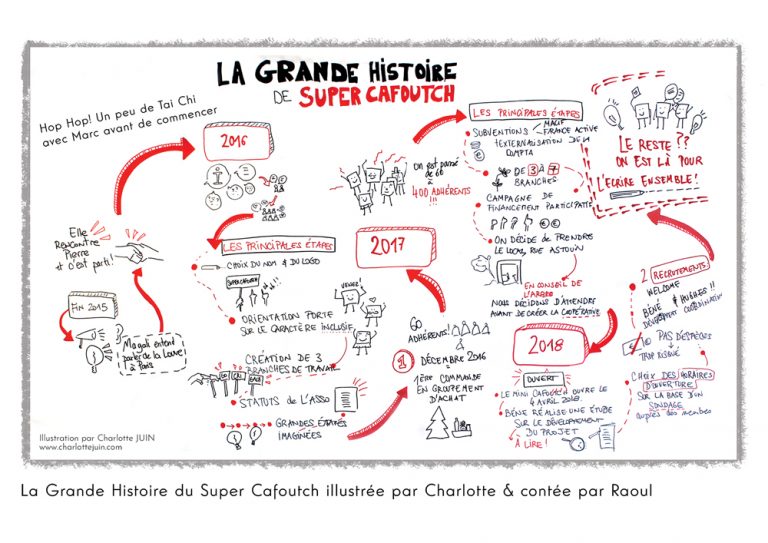 LA GRANDE HISTOIRE
DE SUPER CAFOUTCH
Hop Hop! Un peu de Tai Chi
avec Marc avant de commencer
FIN 2015
Magali entend
parler de la Louve
à Paris
Elle
RENCONTRE
Pierre
& c'est parti!
2016
LES PRINCIPALES ÉTAPES
CHOIX DU NOM & DU LOGO
SUPERCAFOUTCH
ORIENTATION FORTE
SUR LE CARACTÈRE INCLUSIF
VENEZ
CRÉATION DE 3
BRANCHES DE TRAVAIL
STATUTS DE L'ASSO
GRANDES ÉTAPES
IMAGINÉES
60
ADHÉRENTS!
1
DÉCEMBRE 2016
1ÈRE COMMANDE
EN GROUPEMENT
D'ACHAT
2017
ON EST PASSÉ
DE 60
à
400 ADHÉRENTS!
LES PRINCIPALES ÉTAPES
SUBVENTIONS
MACIF
FRANCE ACTIVE
EXTERNALISATION DE LA
COMPTA
DE 3 à 7
BRANCHES
CAMPAGNE DE
FINANCEMENT PARTICIPATIF
ON DÉCIDE DE PRENDRE
LE LOCAL RUE ASTOUIN
EN CONSEIL DE
L'ARBRE
NOUS DÉCIDONS D'ATTENDRE
AVANT DE CRÉER LA COOPÉRATIVE
2018
OUVERT
LE MINI CAFOUTCH OUVRE LE
4 AVRIL 2018.
BÉNÉ RÉALISE UNE ÉTUDE
SUR LE DÉVELOPPEMENT
DU PROJET
À LIRE!
2 RECRUTEMENTS
WELCOME
BÉNÉ & HUGHES!!
PAS D'ESPÈCES
TROP RISQUÉ
CHOIX DES HORAIRES
D'OUVERTURE
SUR LA BASE D'UN
SONDAGE
auprès des membres
LE RESTE??
ON EST LÀ POUR
L'ÉCRIRE ENSEMBLE!
Illustration par Charlotte JUIN
www.charlottejuin.com
La Grande Histoire du Super Cafoutch illustrée par Charlotte & contée par Raoul